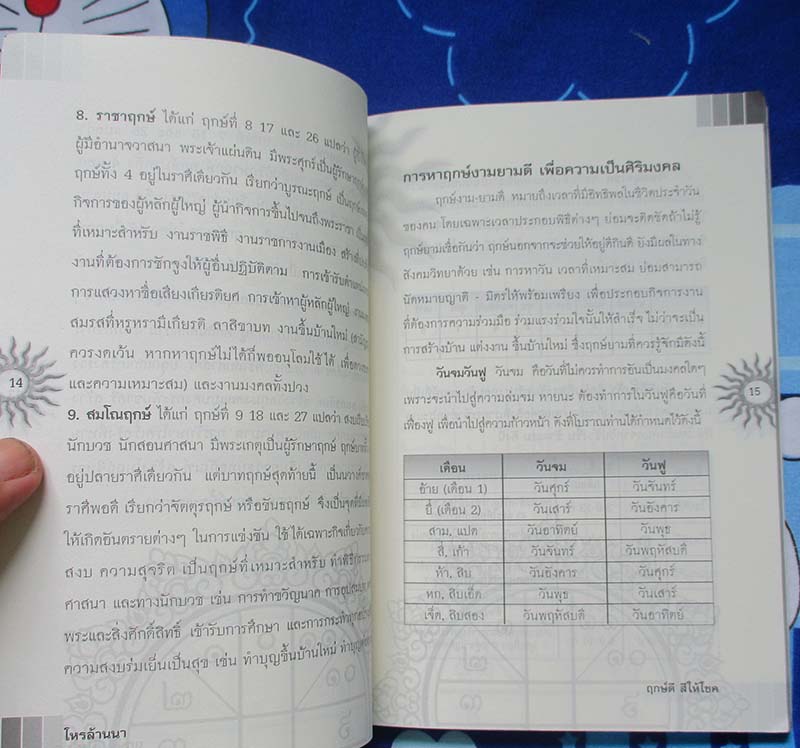 8. ราชาฤกษ์ ได้แก่ ฤกษ์ที่ 8 17 และ 26 แปลว่า
ผู้มีอำนาจวาสนา พระเจ้าแผ่นดิน มีพระศุกร์เป็นผู้รักษาฤกษ์
ฤกษ์ทั้ง 4 อยู่ในราศีเดียวกัน เรียกว่าบูรณะฤกษ์ เป็นฤกษ์
กิจการของผู้หลักผู้ใหญ่ ผู้นำกิจการขึ้นไปจนถึงพระราชา
ที่เหมาะสำหรับ งานราชพิธี งานราชการงานเมือง
งานที่ต้องการชักจูงให้ผู้อื่นปฏิบัติตาม การเข้ารับตำแหน่ง
การแสวงหาชื่อเสียงเกียรติยศ การเข้าหาผู้หลักผู้ใหญ่
สมรสที่หรูหรามีเกียรติ ลาสิขาบท งานขึ้นบ้านใหม่
ควรงดเว้น หากหาฤกษ์ไม่ได้ก็พออนุโลมใช้ได้
และความเหมาะสม) และงานมงคลทั้งปวง
14
9. สมโณฤกษ์ ได้แก่ ฤกษ์ที่ 9 18 และ 27 แปลว่า
นักบวช นักสอนศาสนา มีพระเกตุเป็นผู้รักษาฤกษ์
อยู่ปลายราศีเดียวกัน แต่บาทฤกษ์สุดท้ายนี้
ราศีพอดี เรียกว่าจัตตุรฤกษ์ หรือขันธฤกษ์
ให้เกิดอันตรายต่างๆ ในการแข่งขัน ใช้ได้เฉพาะกิจเกี่ยวกับ
สงบ ความสุจริต เป็นฤกษ์ที่เหมาะสำหรับ
ศาสนา และทางนักบวช เช่น การทำขวัญนาค
พระและสิ่งศักดิ์สิทธิ์ เข้ารับการศึกษา
ความสงบร่มเย็นเป็นสุข เช่น ทำบุญขึ้นบ้านใหม่
โหรล้านนา
การหาฤกษ์งามยามดี เพื่อความเป็นศิริมงคล
ฤกษ์งาม-ยามดี หมายถึงเวลาที่มีอิทธิพลในชีวิตประจำวัน
ของคน โดยเฉพาะเวลาประกอบพิธีต่างๆ ย่อมจะติดขัดถ้าไม่รู้
ฤกษ์ยามเชื่อกันว่า ฤกษ์นอกจากจะช่วยให้อยู่ดีกินดี ยังมีผลในทาง
สังคมวิทยาด้วย เช่น การหาวัน เวลาที่เหมาะสม ย่อมสามารถ
นัดหมายญาติ - มิตรให้พร้อมเพรียง เพื่อประกอบกิจการงาน
ที่ต้องการความร่วมมือ ร่วมแรงร่วมใจนั้นให้สำเร็จ ไม่ว่าจะเป็น
การสร้างบ้าน แต่งงาน ขึ้นบ้านใหม่ ซึ่งฤกษ์ยามที่ควรรู้จักมีดังนี้
วันจมวันฟู วันจม คือวันที่ไม่ควรทำการอันเป็นมงคลใดๆ
เพราะจะนำไปสู่ความล่มจม หายนะ ต้องทำการในวันฟูคือวันที่
เฟื่องฟู เพื่อนำไปสู่ความก้าวหน้า ดังที่โบราณท่านได้กำหนดไว้ดังนี้
15
เดือน วันจม วันฟู
อ้าย (เดือน 1) วันศุกร์ วันจันทร์
ยี่ (เดือน 2) วันเสาร์ วันอังคาร
สาม, แปด วันอาทิตย์ วันพุธ
สี่, เก้า วันจันทร์ วันพฤหัสบดี
ห้า, สิบ วันอังคาร วันศุกร์
หก, สิบเอ็ด วันพุธ วันเสาร์
เจ็ด, สิบสอง วันพฤหัสบดี วันอาทิตย์
ฤกษ์ดี สีให้โชค